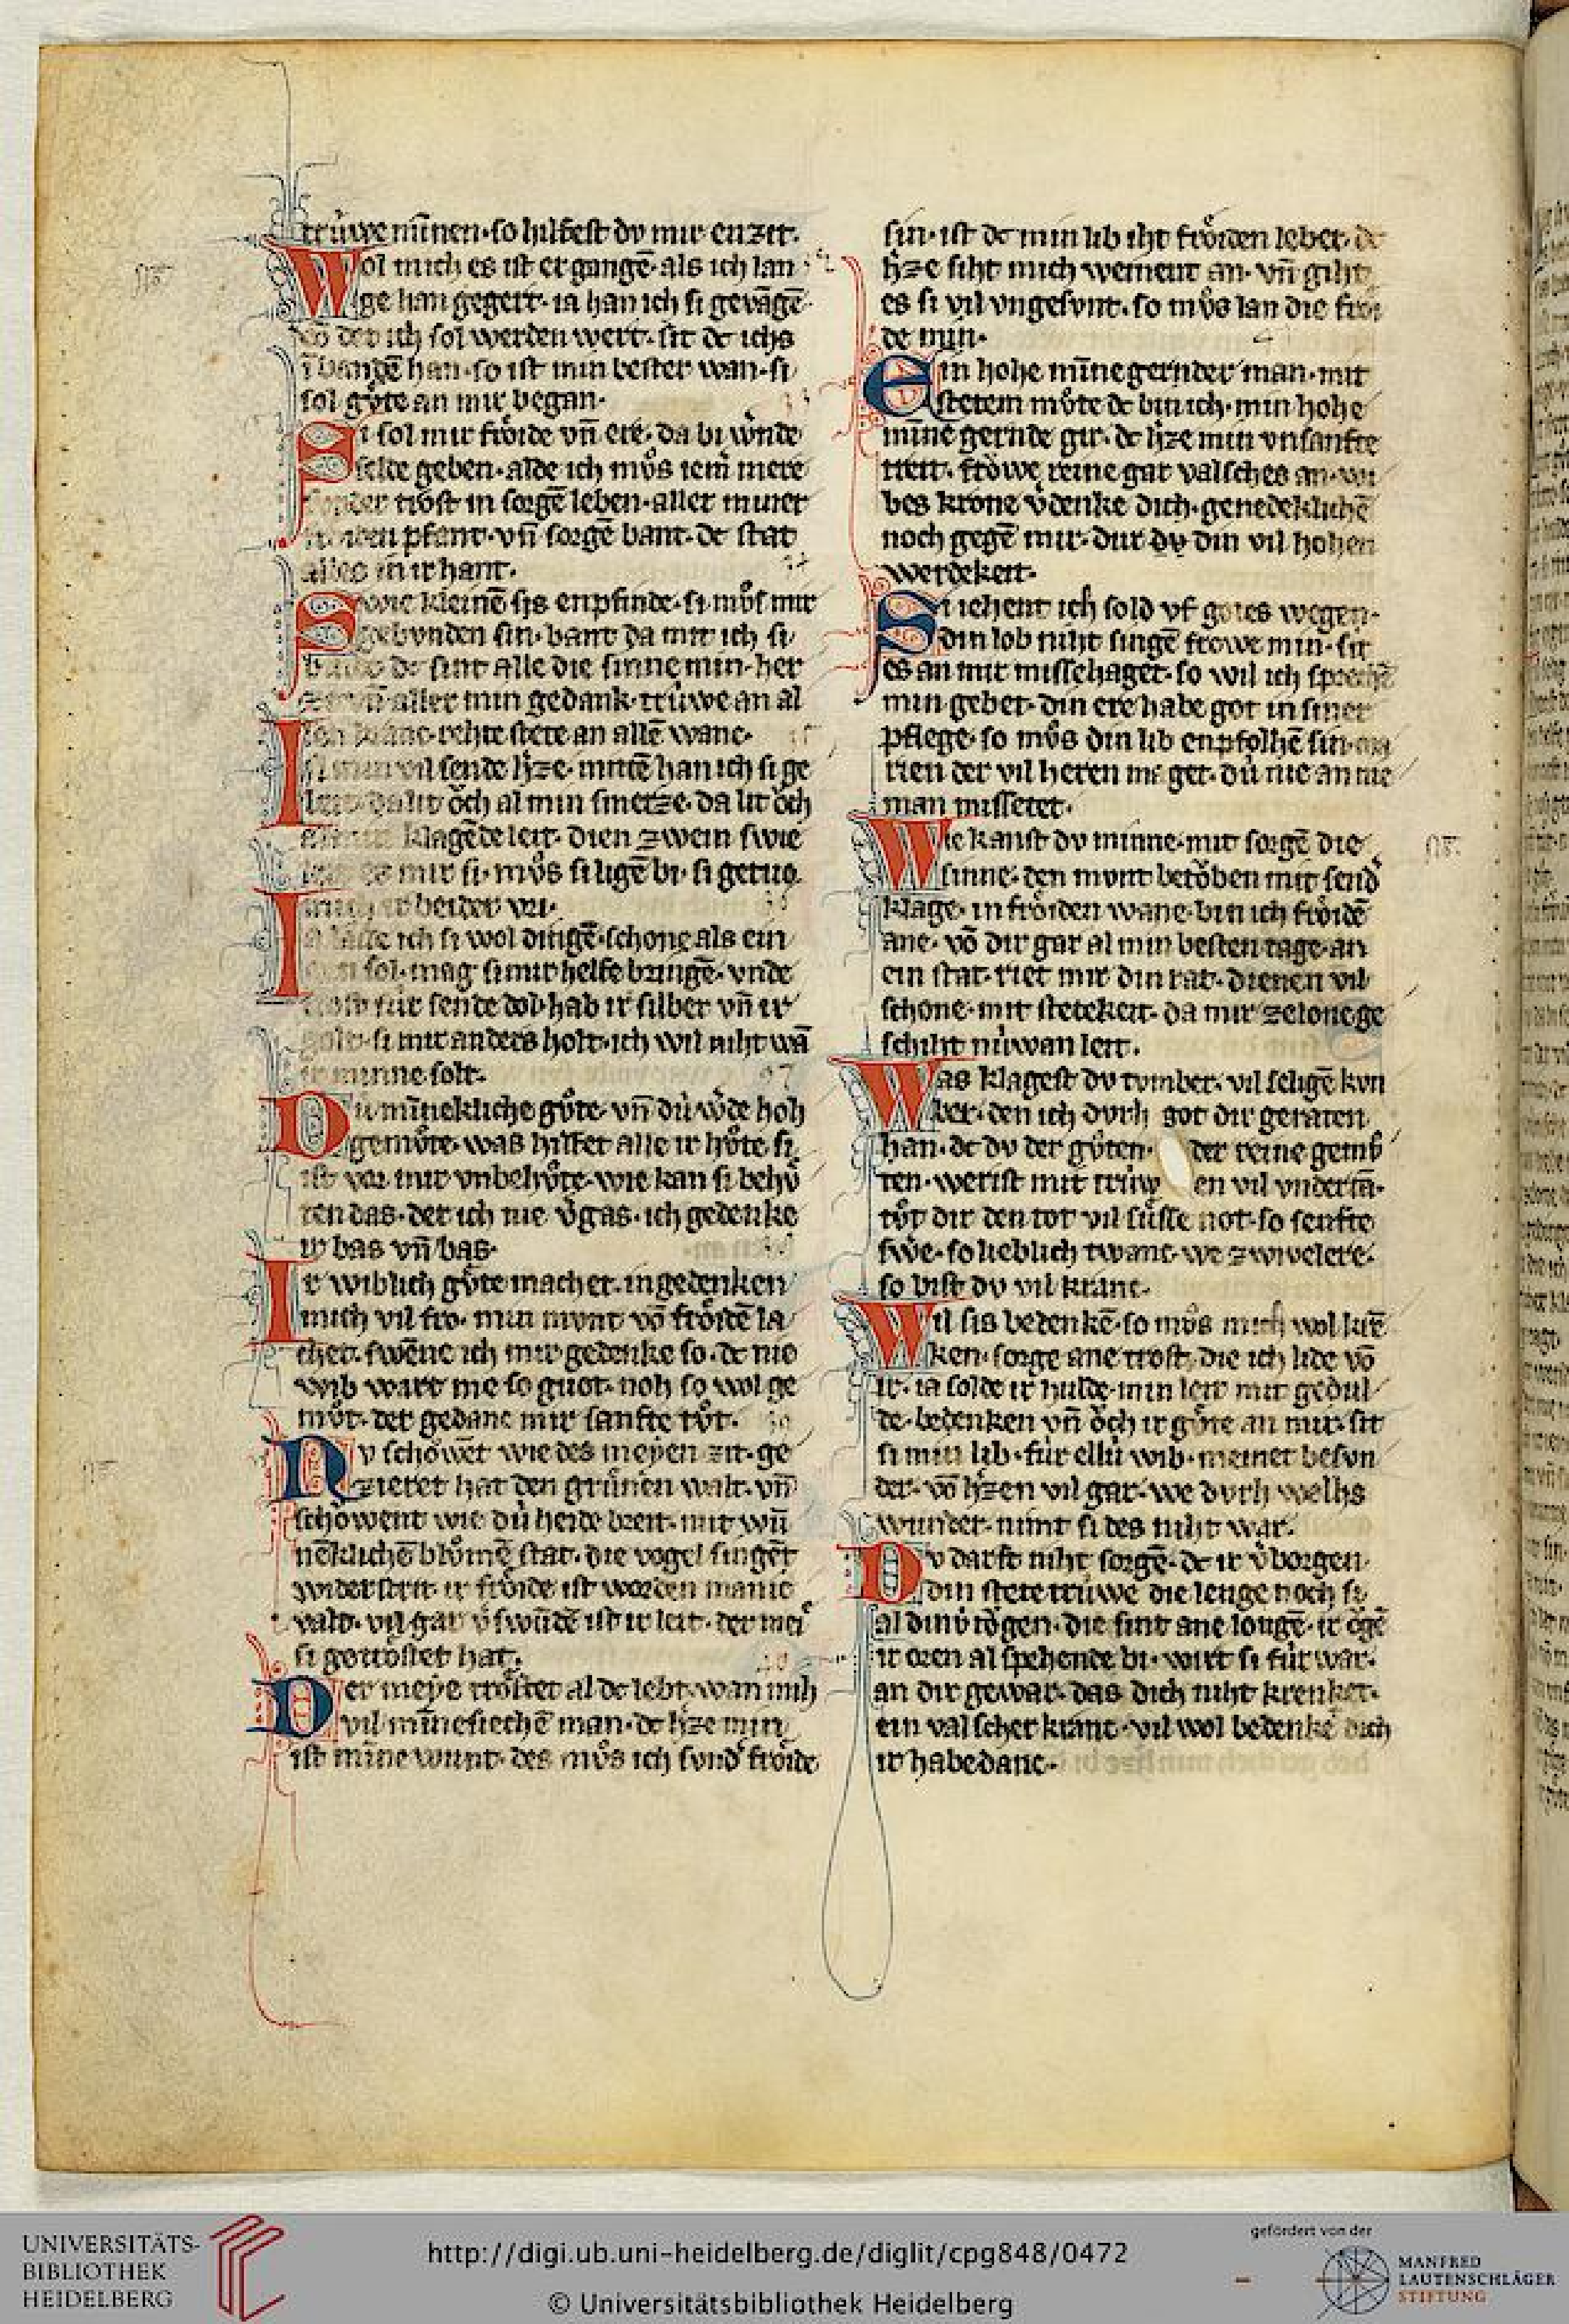 trúwe minnen· so hilfest dv mir enzit·
Wol mich es ist ergangē· als ich lan
ge han gegert· ia han ich si gevāgē
vō der ich sol werden wert· sit dc ichs
ī banden han· so ist min bester wan· si
sol gvͤte an mir began·
Si sol mir froͤide vn̄ ere· da bi wͦnde
selde geben· alde ich mvͦs iem̄ mere
sender trost in sorgē leben· aller miner
froͤiden pfant· vn̄ sorgē bant· dc stat
alles in ir hant·
Swie kleinē sis enpfinde· si mvͦs mir
gebvnden sin· bant da mit ich si
binde dc sint alle die sinne min· her
ze vn̄ aller min gedank· trúwe an al
len kranc· rehte stete an allē wanc·
In min vil sende h'ze· mittē han ich si ge
leit· da lit oͤch al min smerze· da lit oͤch
klagēde leit· dien zwein swie
mir si· mvͦs si ligē bi· si getuo
mich ir beider vri·
ich si wol dingē· schone als ein
sol· mag si mir helfe bringē· vnde
fúr sende dol· hab ir silber vn̄ ir
golt· si mir anders holt· ich wil niht wā
ir minne solt·
Dú minnekliche gvͦte· vn̄ dú w'de hoh
gemvͦte· was hilfet alle ir hvͦte· si
ist vor mir vnbehvͦte· wie kan si behvͤ
ten das· der ich nie v'gas· ich gedenke
ir bas vn̄ bas·
Ir wiblich gvͤte machet· in gedenken
mich vil fro· min mvnt vō froͤidē la
chet· swēne ich mir gedenke so· dc nie
wib wart me so guot· noh so wol ge
mvͦt· der gedanc mir sanfte tvͦt·
Nv schoͤwet wie des meyen zit· ge
zieret hat den grvͤnen walt· vn̄
schoͤwent wie dú heide breit· mit wū
neklichē blvͦmē stat· die vogel singēt
widerstrit· ir froͤide ist worden manic
valt· vil gar v'swūdē ist ir leit· der mei
si getroͤstet hat·
Der meye troͤstet al dc lebt· wan mih
vil minnesiechē man· dc h'ze min
ist mīne wunt· des mvͦs ich sund' froͤide
sin· ist dc min lib iht froͤiden lebet· dc
h'ze siht mich weinent an· vn̄ giht
es si vil vngesvnt· so mvͦs lan die froͤi
de min·
Ein hohe mīne gernder man· mit
stetem mvͦte dc bin ich· min hohe
mīne gernde gir· dc h'ze min vnsanfte
treit· froͤwe reine gar valsches an· wi
bes krone v'denke dich· genedeklichē
noch gegē mir· dur dv̓ din vil hohen
werdekeit·
Si iehent ich sold vf gotes wegen·
din lob niht singē frowe min· sit
es an mir missehaget· so wil ich sprechē
min gebet· din ere habe got in siner
pflege· so mvͦs din lib enpfolhē sin· ma
rien der vil heren maget· dú nie an nie
man missetet·
Wie kanst dv minne· mit sorgē die
sinne· den mvnt betoͤben mit send'
klage· in froͤiden wane· bin ich froͤidē
ane· vō dir gar al min besten tage· an
ein stat· riet mir din rat· dienen vil
schone· mit stetekeit· da mir ze lone ge
schiht núwan leit·
Was klagest dv tvmber· vil seligē kvn
ber· den ich dvrh got dir geraten
han· dc dv der gvͤten· der reine gemvͦ
ten· werist mit trúw en vil vndertā·
tvͦt dir den tot vil suͤsse not· so senfte
swe· so lieblich twanc· we zwivelere·
so bist dv vil kranc·
Wil sis bedenkē· so mvͦs mich wol krē
ken· sorge ane trost· die ich lide vō
ir· ia solde ir hulde· min leit mit gedul
de· bedenken vn̄ oͤch ir gvͤte an mir· sit
si min lib· fúr ellú wib· meinet besvn
der· vō h'zen vil gar· we dvrh welhs
wunder· nimt si des niht war·
Dv darft niht sorgē· dc ir v'borgen
din stete trúwe die lenge noch si
al dinv̓ toͮgen· die sint ane loͮgē· ir oͮgē
ir oren al spehende bi· wirt si fúr war·
an dir gewar· das dich niht krenket·
ein valscher kranc· vil wol bedenkē dich
ir habedanc·
UNIVERSITÄTS-
BIBLIOTHEK
HEIDELBERG
http://digi.ub.uni-heidelberg.de/diglit/cpg848/0472
© Universitätsbibliothek Heidelberg
gefördert von der
MANFRED
LAUTENSCHLÄGER
STIFTUNG